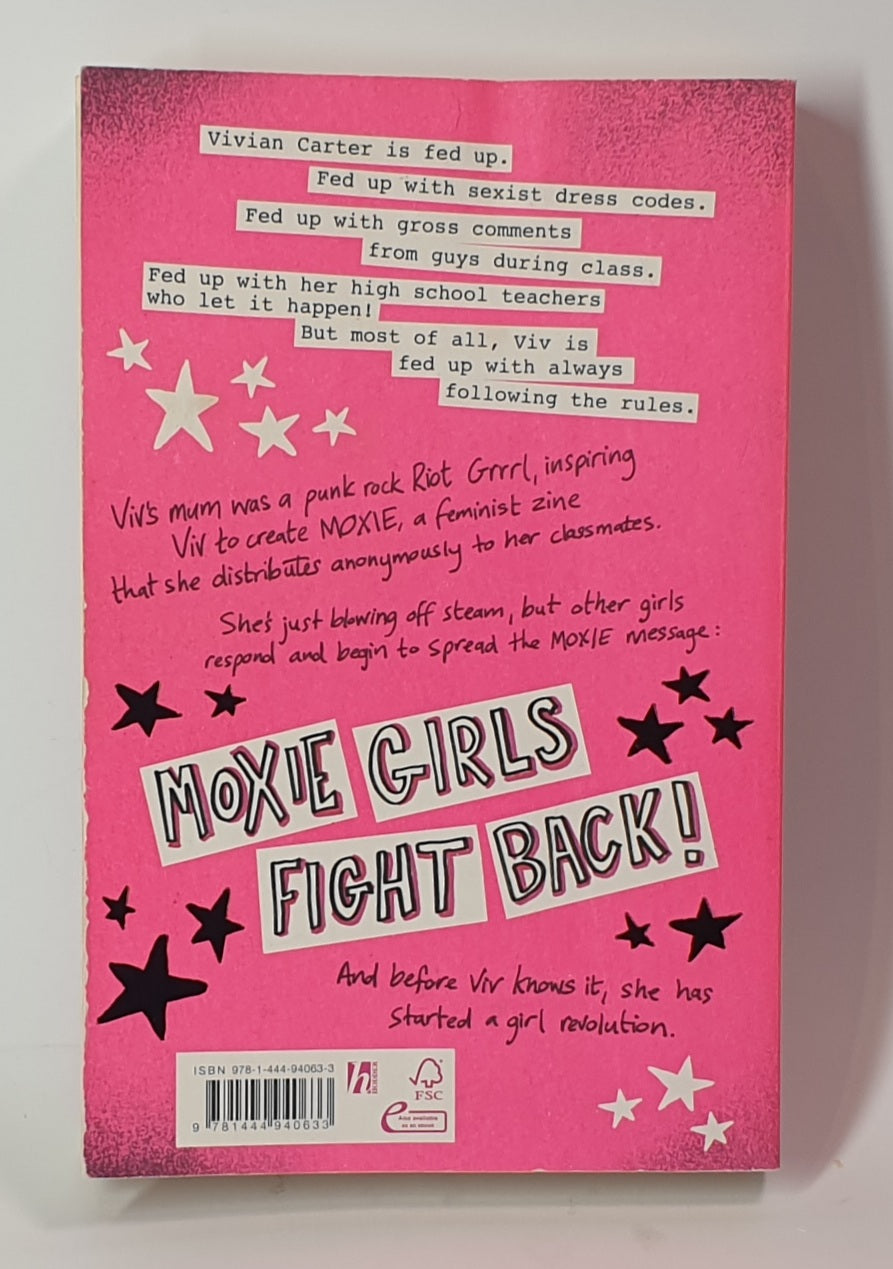 Vivian Carter is fed up.
Fed up with sexist dress codes.
Fed up with gross comments
from guys during class.
Fed up with her high school teachers
who let it happen!
But most of all, Viv is
fed up with always
following the rules.
Viv's mum was a punk rock Riot Grrrl, inspiring
Viv to create MOXIE, a feminist zine
that she distributes anonymously to her classmates.
She's just blowing off steam, but other girls
respond and begin to spread the MOXIE message:
MOXIE GIRLS
FIGHT BACK!
And before Viv knows it, she has
started a girl revolution.
ISBN 978-1-444-94063-3
9 781444 940633
h
HODDER
FSC
e
Also available
as an ebook